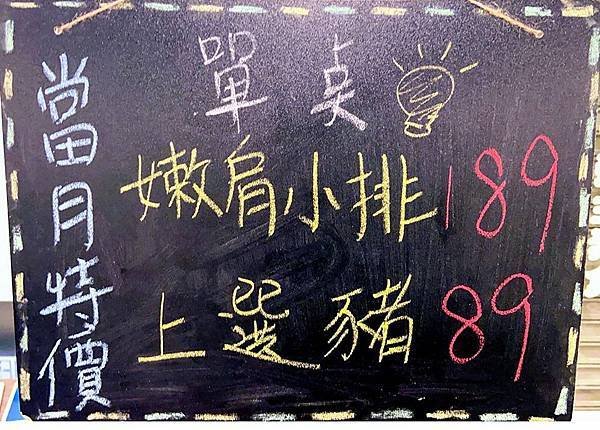 當月特價
單點
嫩肩小排 189
上選豬 89